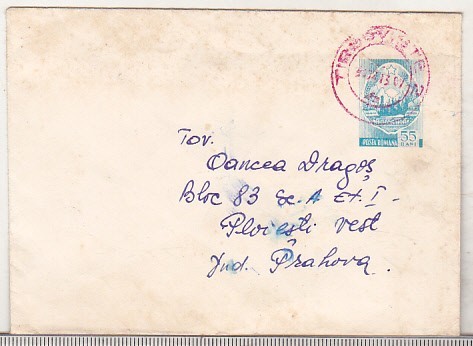 TIRGOVISTE
POSTA ROMANA 55 BANI
Tov.
Oancea Dragoș
Bloc 83 Sc. A Et. I -
Ploiești Vest
Jud. Prahova.